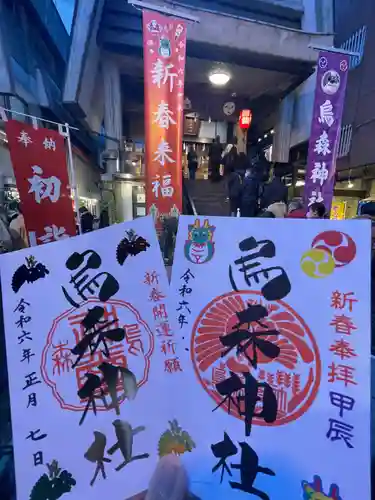 奉納
初
新春来福
烏森神社
烏森神社
令和六年
正月
七日
新春開運
祈願
烏森神社
令和六年
新春奉拝
甲辰